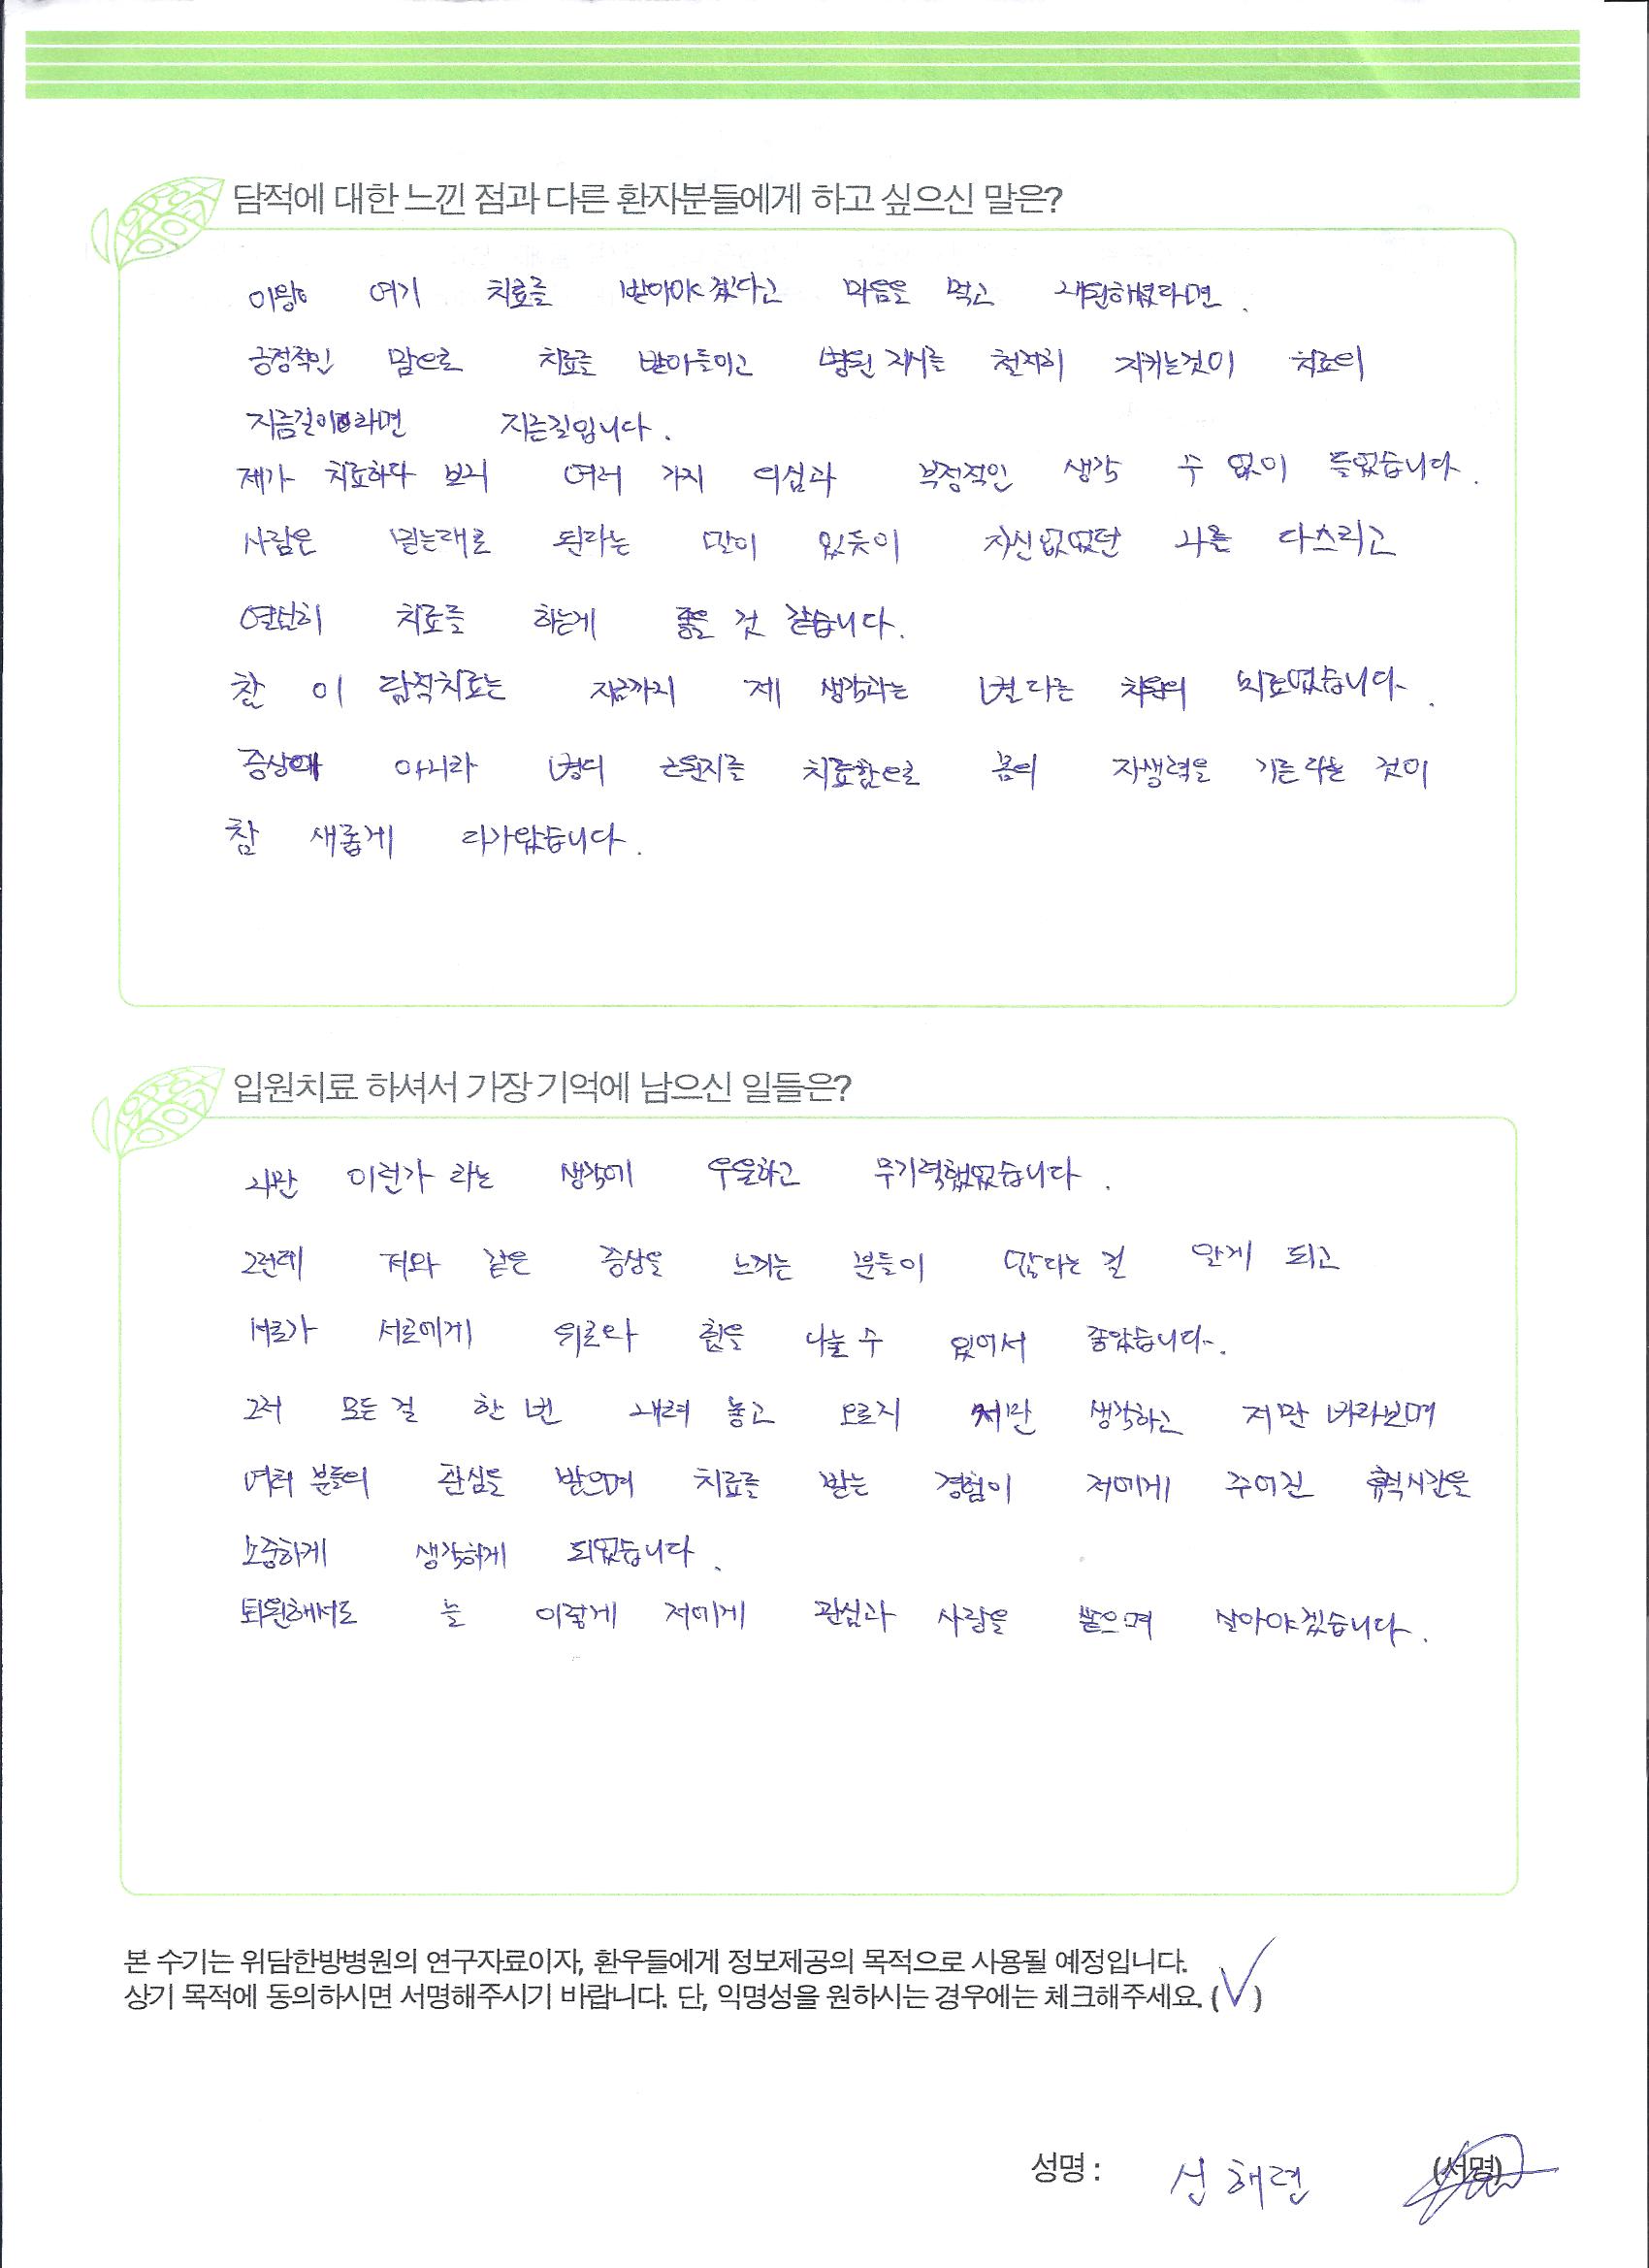 담적에 대한 느낀 점과 다른 환자분들에게 하고 싶으신 말은?
이왕 여기 치료를 받아야 겠다고 마음을 먹고 내원하셨다면.
긍정적인 맘으로 치료를 받아들이고 병원 지시를 철저히 지키는것이 치료의
지름길이라면 지름길입니다.
제가 치료하다 보니 여러 가지 의심과 부정적인 생각 수 없이 들었습니다.
사람은 믿는대로 된다라는 말이 있듯이 자신없었던 나를 다스리고
열심히 치료를 하는게 좋을 것 같습니다.
참 이 담적치료는 지금까지 제 생각과는 별다른 차원의 치료였습니다.
증상에 아니라 병의 근원지를 치료함으로 몸의 자생력을 기른다는 것이
참 새롭게 다가왔습니다.
입원치료 하셔서 가장 기억에 남으신 일들은?
나만 이런가 라는 생각에 우울하고 무기력했었습니다.
그런데 저와 같은 증상을 느끼는 분들이 많다는 걸 알게 되고
서로가 서로에게 위로와 힘을 나눌 수 있어서 좋았습니다.
그저 모든 걸 한 번 내려 놓고 오로지 저만 생각하고 저만 바라보며
여러 분들의 관심을 받으며 치료를 받는 경험이 저에게 주어진 휴식시간을
소중하게 생각하게 되었습니다.
퇴원해서도 늘 이렇게 저에게 관심과 사랑을 쏟으며 살아야겠습니다.
본 수기는 위담한방병원의 연구자료이자, 환우들에게 정보제공의 목적으로 사용될 예정입니다.
상기 목적에 동의하시면 서명해주시기 바랍니다. 단, 익명성을 원하시는 경우에는 체크해주세요. (√)
성명 : 신해련 (서명)